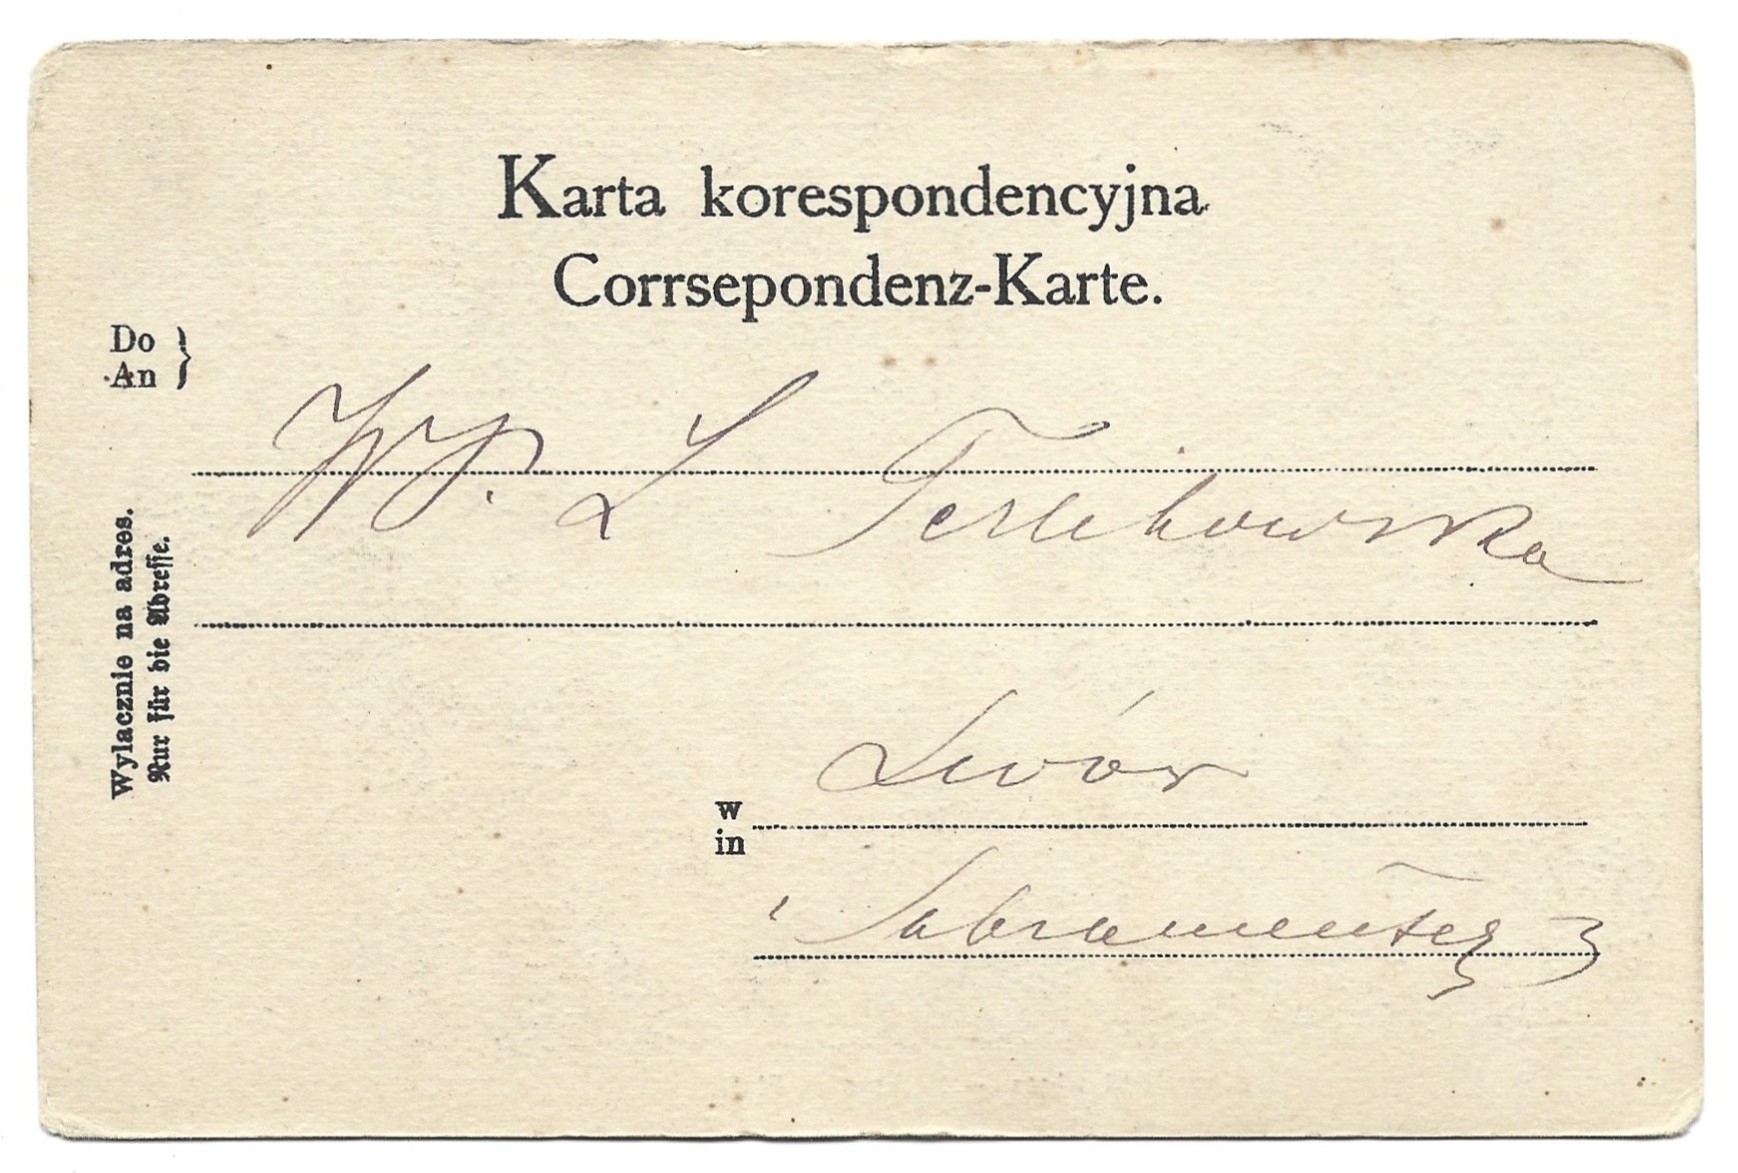 Karta korespondencyjna
Corrsepondenz-Karte.
Do
An
WP. L Terlikowska
Wylacznie na adres.
Nur für die Adresse.
Lwów
w
in
Sakramentek 3